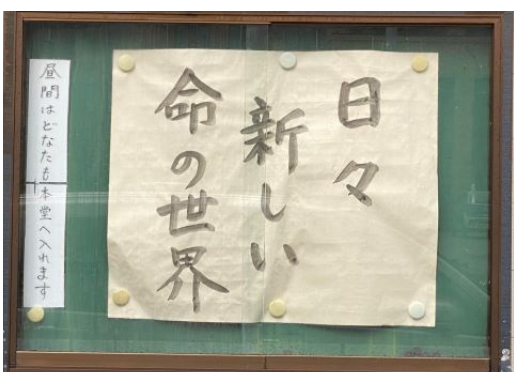 日々
新しい
命の世界
昼間はどなたも本堂へ入れます